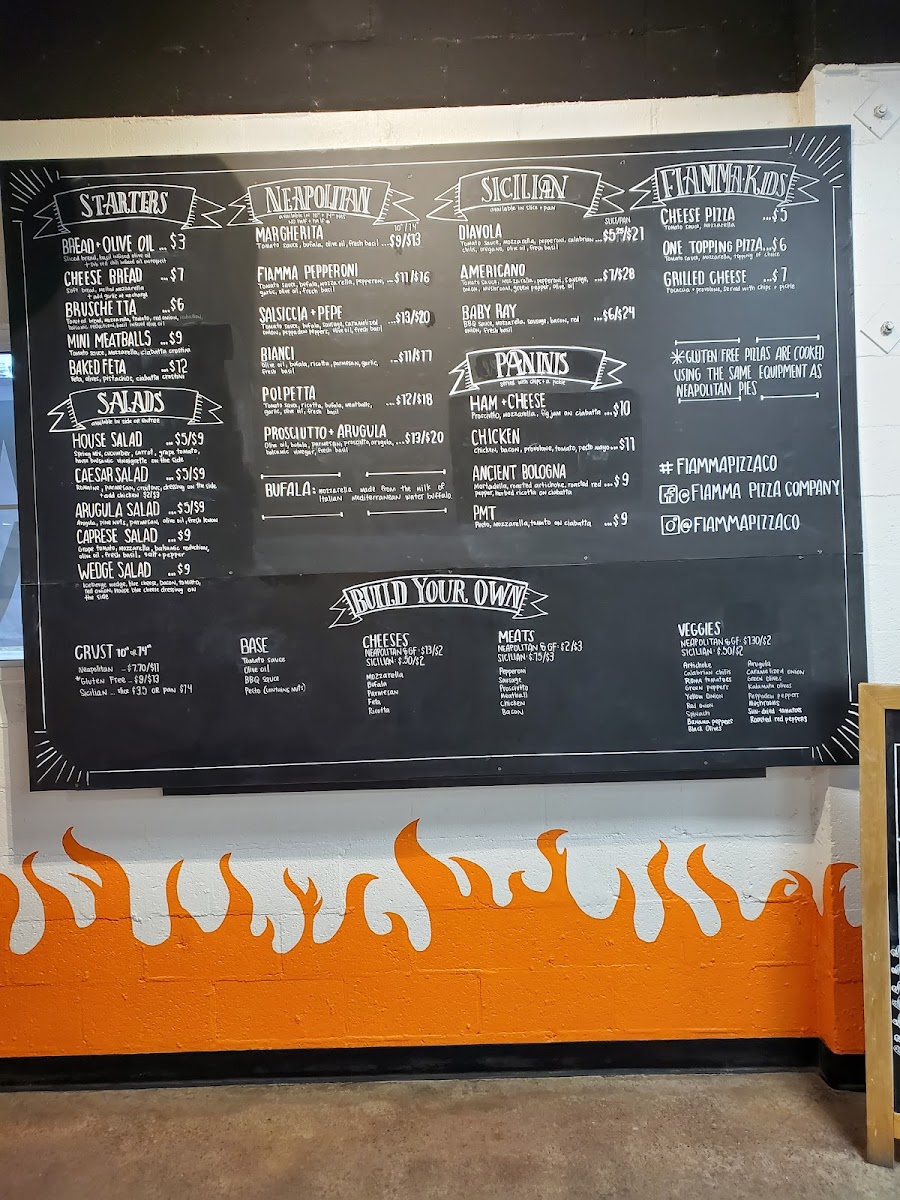 STARTERS
BREAD + OLIVE OIL ... $3
Sliced bread, basil infused olive oil
CHEESE BREAD ... $7
Soft bread, melted mozzarella
+ add garlic at no charge
BRUSCHETTA ... $6
Toasted bread, mozzarella, tomato, red onion,
balsamic reduction, basil infused olive oil
MINI MEATBALLS ... $9
Tomato sauce, Mozzarella, ciabatta crostini
BAKED FETA ... $12
Feta, olives, pistachios, ciabatta crostini
SALADS
available in side or entree
HOUSE SALAD ... $5/$9
Spring mix, cucumber, carrot, grape tomato,
house balsamic vinaigrette on the side
CAESAR SALAD ... $5/$9
Romaine, parmesan, croutons, dressing on the side
+ add chicken $2/$3
ARUGULA SALAD ... $5/$9
Arugula, pine nuts, parmesan, olive oil, fresh lemon
CAPRESE SALAD ... $9
Grape tomato, mozzarella, balsamic reduction,
olive oil, fresh basil, salt + pepper
WEDGE SALAD ... $9
Iceberg wedge, blue cheese, bacon, tomato,
red onion, house blue cheese dressing on
the side
NEAPOLITAN
available in 10" & 14" pies
10"/14"
MARGHERITA
Tomato sauce, bufala, olive oil, fresh basil ... $9/$13
FIAMMA PEPPERONI
Tomato sauce, bufala, mozzarella, pepperoni, ... $11/$16
garlic, olive oil, fresh basil
SALSICCIA + PEPE
Tomato sauce, bufala, sausage, caramelized ... $13/$20
onion, peppadew peppers, olive oil, fresh basil
BIANCI
Olive oil, bufala, ricotta, parmesan, garlic, ... $11/$17
fresh basil
POLPETTA
Tomato sauce, ricotta, bufala, meatballs, ... $12/$18
garlic, olive oil, fresh basil
PROSCIUTTO + ARUGULA
Olive oil, bufala, parmesan, prosciutto, arugula, ... $13/$20
balsamic vinegar, fresh basil
BUFALA: mozzarella made from the milk of
Italian Mediterranean water buffalo.
SICILIAN
available in slice + pan
SLICE/PAN
DIAVOLA
Tomato sauce, mozzarella, pepperoni, calabrian ... $5.25/$21
chilis, oregano, olive oil, fresh basil
AMERICANO
Tomato sauce, mozzarella, pepperoni, sausage, ... $7/$28
onion, mushroom, green pepper, olive oil
BABY RAY
BBQ sauce, mozzarella, sausage, bacon, red ... $6/$24
onion, fresh basil
PANINIS
served with chips + a pickle
HAM + CHEESE
Prosciutto, mozzarella, fig jam on ciabatta ... $10
CHICKEN
Chicken, bacon, provolone, tomato, pesto mayo ... $11
ANCIENT BOLOGNA
Mortadella, roasted artichoke, roasted red ... $9
pepper, herbed ricotta on ciabatta
PMT
Pesto, mozzarella, tomato on ciabatta ... $9
FIAMMA KIDS
CHEESE PIZZA ... $5
Tomato sauce, mozzarella
ONE TOPPING PIZZA ... $6
Tomato sauce, mozzarella, topping of choice
GRILLED CHEESE ... $7
Focaccia + provolone, served with chips + pickle
*GLUTEN FREE PIZZAS ARE COOKED
USING THE SAME EQUIPMENT AS
NEAPOLITAN PIES
# FIAMMAPIZZACO
f @ FIAMMA PIZZA COMPANY
@FIAMMAPIZZACO
BUILD YOUR OWN
CRUST 10" or 14"
Neapolitan – $7.70/$11
*Gluten Free – $9/$13
Sicilian ... slice $3.5 or PAN $14
BASE
Tomato sauce
Olive oil
BBQ sauce
Pesto (contains nuts)
CHEESES
NEAPOLITAN & GF: $1.5/$2
SICILIAN: $.50/$2
Mozzarella
Bufala
Parmesan
Feta
Ricotta
MEATS
NEAPOLITAN & GF: $2/$3
SICILIAN: $.75/$3
Pepperoni
Sausage
Prosciutto
Meatball
Chicken
Bacon
VEGGIES
NEAPOLITAN & GF: $1.30/$2
SICILIAN: $.50/$2
Artichoke
Calabrian chilis
Roma tomatoes
Green peppers
Yellow Onion
Red onion
Spinach
Banana peppers
Black Olives
Arugula
Caramelized onion
Green olives
Kalamata olives
Peppadew peppers
Mushrooms
Sun-dried tomatoes
Roasted red peppers